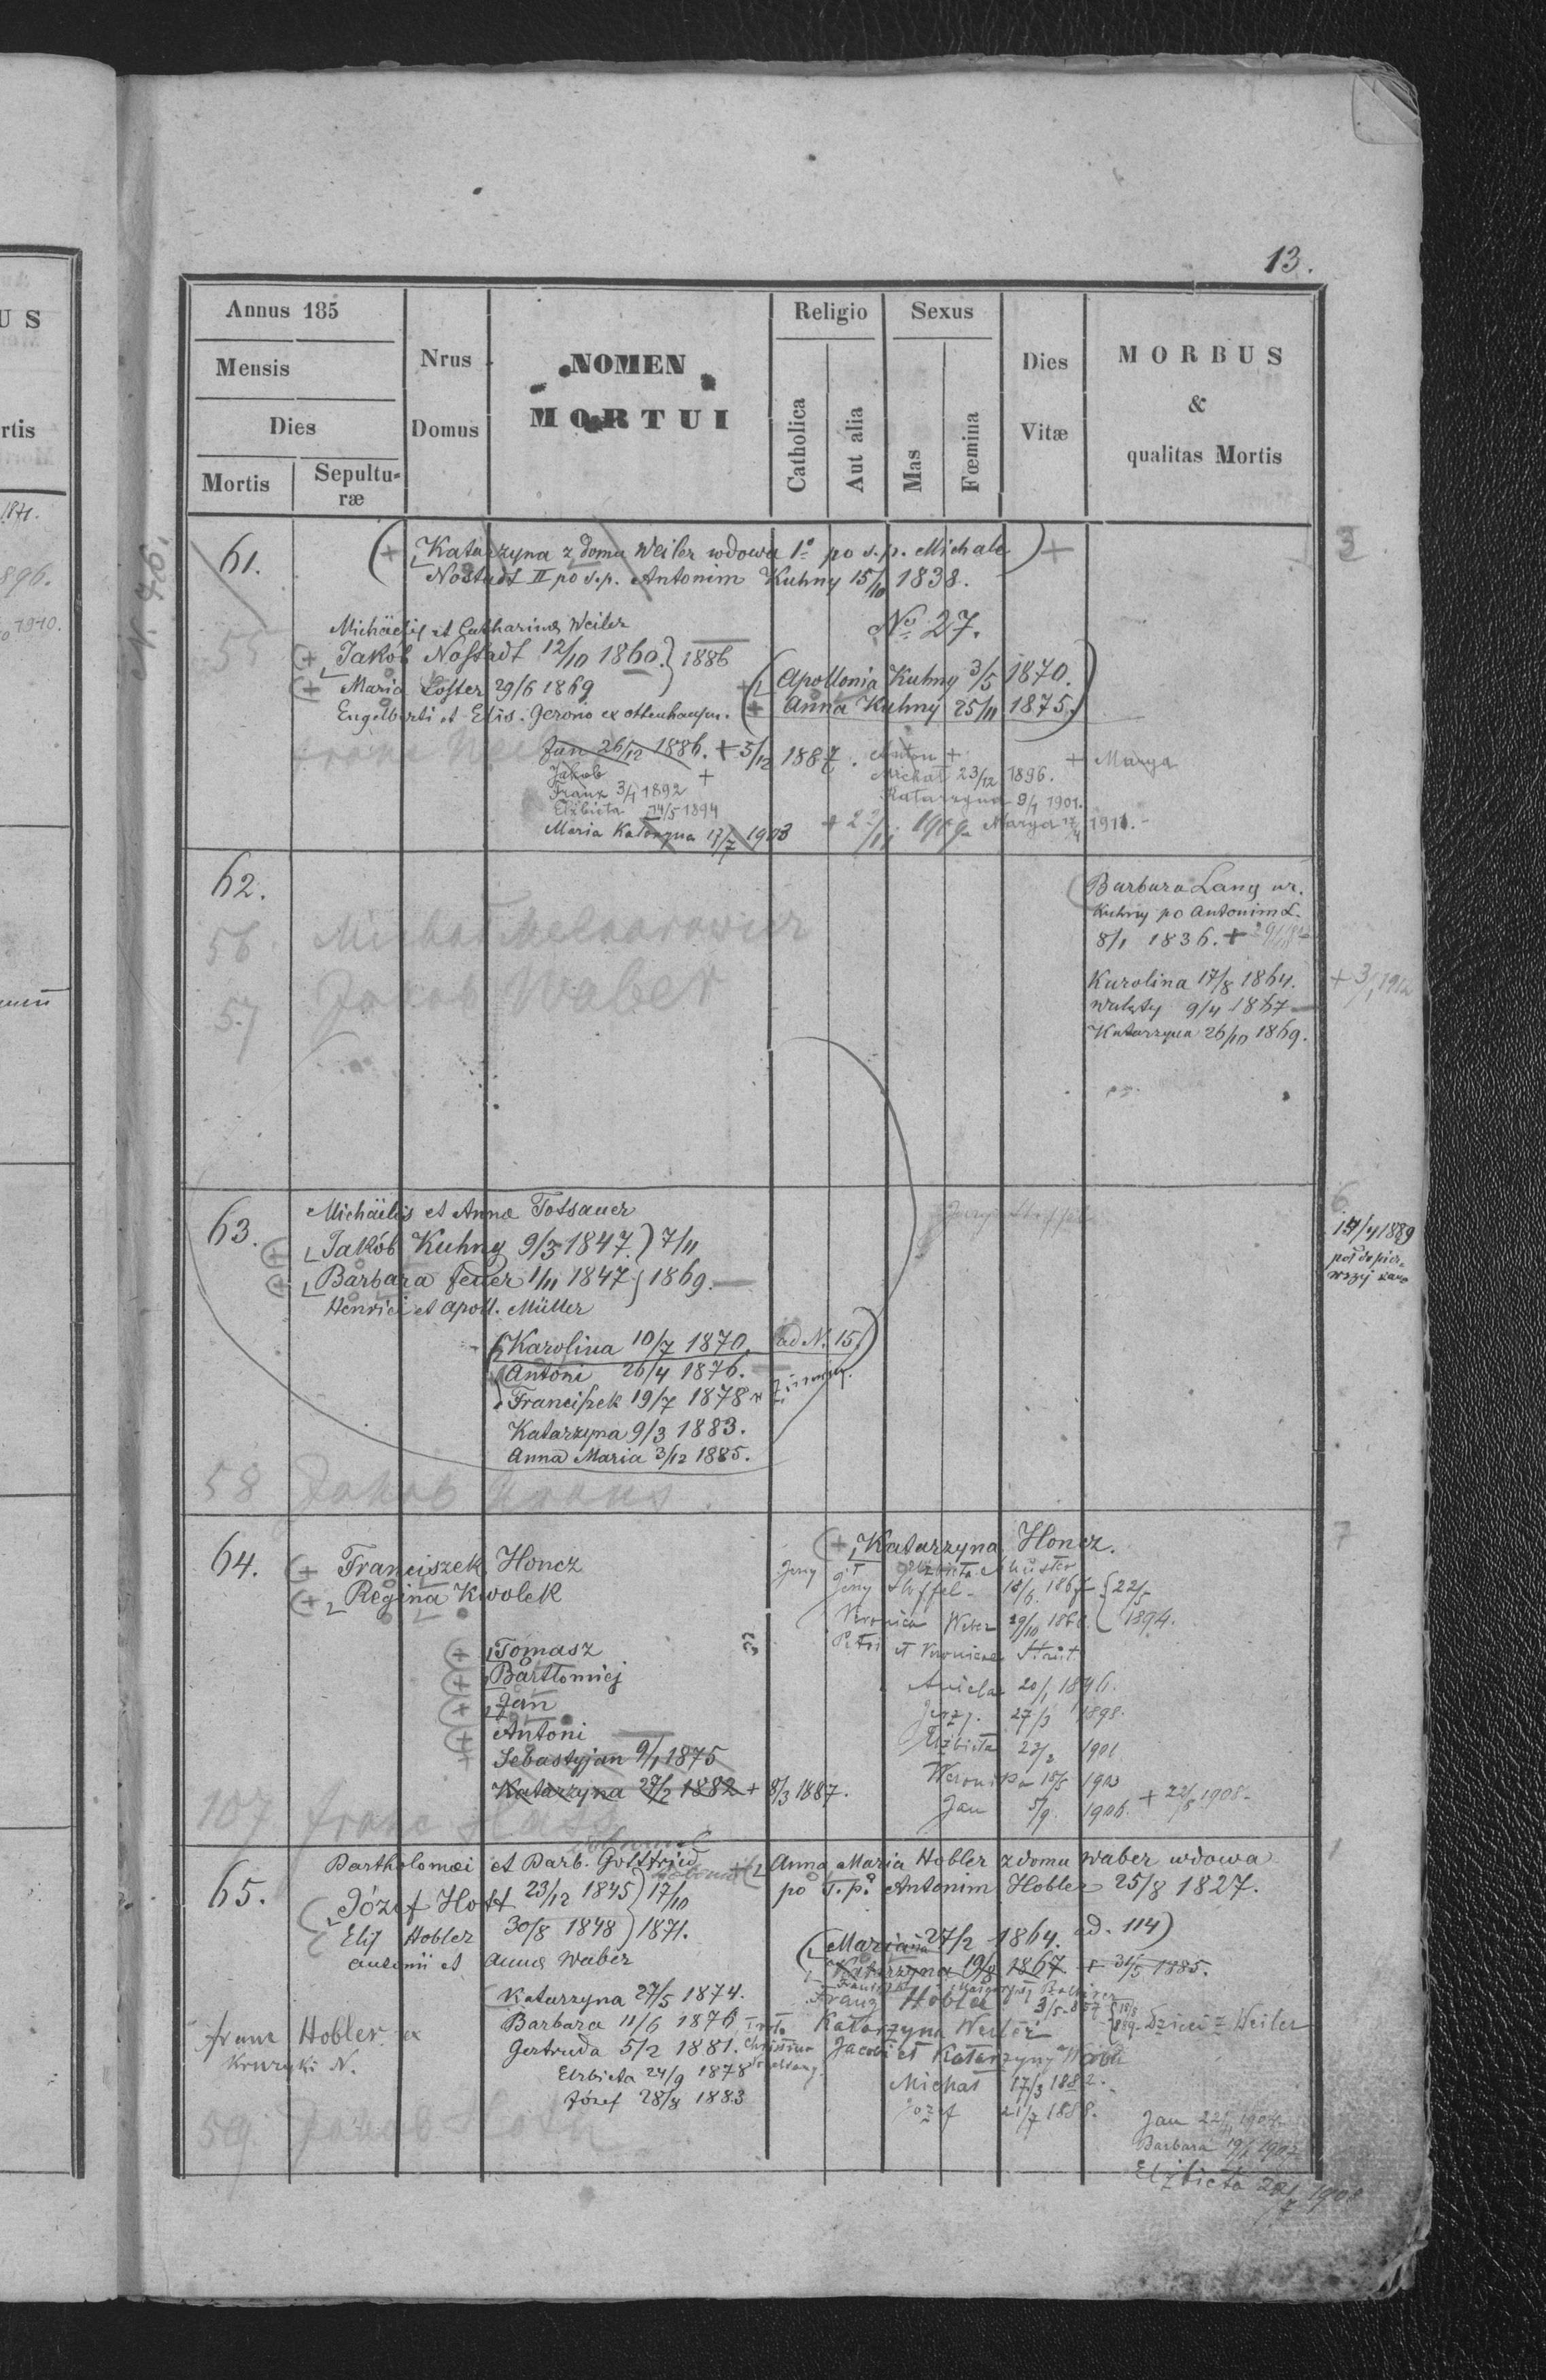 13.
Annus 185
Mensis
Dies
Mortis
Sepultu-
ræ
Nrus
Domus
NOMEN
MORTUI
Religio
Catholica
Aut alia
Sexus
Mas
Fœmina
Dies
Vitæ
MORBUS
&
qualitas Mortis
61.
Katarzyna z domu Weiler wdowa 1º po s.p. Michale
Nostadt II po s.p. Antonim Kuhny 15/10 1838.
Michaëlis et Catharina Weiler
Jakób Nostadt 12/10 1860. } 1886
Maria Loster 29/6 1869
Engelberti et Elis. Gerono ex Ottenhausen.
No 27.
Apollonia Kuhny 3/5 1870.
Anna Kuhny 25/11 1875.
Jan 26/12 1886. + 5/12 1887.
Jakob +
Franz 3/1 1892
Elżbieta 14/5 1894
Maria Katarzyna 17/7 1903
Anton +
Michał 23/12 1896.
Katarzyna 9/1 1901.
Marya 1911.
+ Marya
62.
56
57
Jakob Waber
Barbara Lang ur.
Kuhny po Antonim L.
8/1 1836. +
Karolina 17/8 1864. + 3/1 1912
Walęty 9/4 1867
Katarzyna 26/10 1869.
63.
Michaëlis et Anna Totsauer
Jakób Kuhny 9/3 1847. ) 7/11
Barbara Feuer 1/11 1847 } 1869.
Henrici et Apoll. Müller
Karolina 10/7 1870. ad N. 15.)
Antoni 26/4 1876.
Franciszek 19/7 1878
Katarzyna 9/3 1883.
Anna Maria 3/12 1885.
58 Jakob
6
1889
7
64.
Franciszek Honcz
Regina Kwolek
Tomasz
Bartłomiej
Jan
Antoni
Sebastyjan 9/1 1875
Katarzyna 27/2 1882 + 8/3 1887.
Katarzyna Honcz.
Jerzy Stoffel { 22/5
Veronica Weber 29/10 } 1894.
Petri et Veronicae
Aniela 20/1 1896.
Jerzy. 27/3 1898.
Elżbieta 1901
Weronika 18/5 1903
Jan 5/9. 1906. + 22/8 1908.
107 Franc
65.
Bartholomæi et Barb. Gottfried
Józef Hott 23/12 1845 ) 17/10
Elis Hobler 30/8 1848 ) 1871.
Antonii et Anna Waber
Katarzyna 27/5 1874.
Barbara 11/6 1876
Gertruda 5/2 1881.
Elzbieta 24/9 1878
Józef 28/8 1883
Franc Hobler ex
Anna Maria Hobler z domu Waber wdowa
po ś.p. Antonim Hobler 25/8 1827.
Marianna 27/2 1864. ad. 114)
Katarzyna 19/8 1867. + 31/5 1885.
Franz Hobler
Katarzyna Weiler
Jacobi et Katarzyny Waber
Michał 17/3 1882.
Jozef 21/7 1888.
Dzieci z Weiler
Jan
Barbara
Elżbieta 1908
59 Jakob